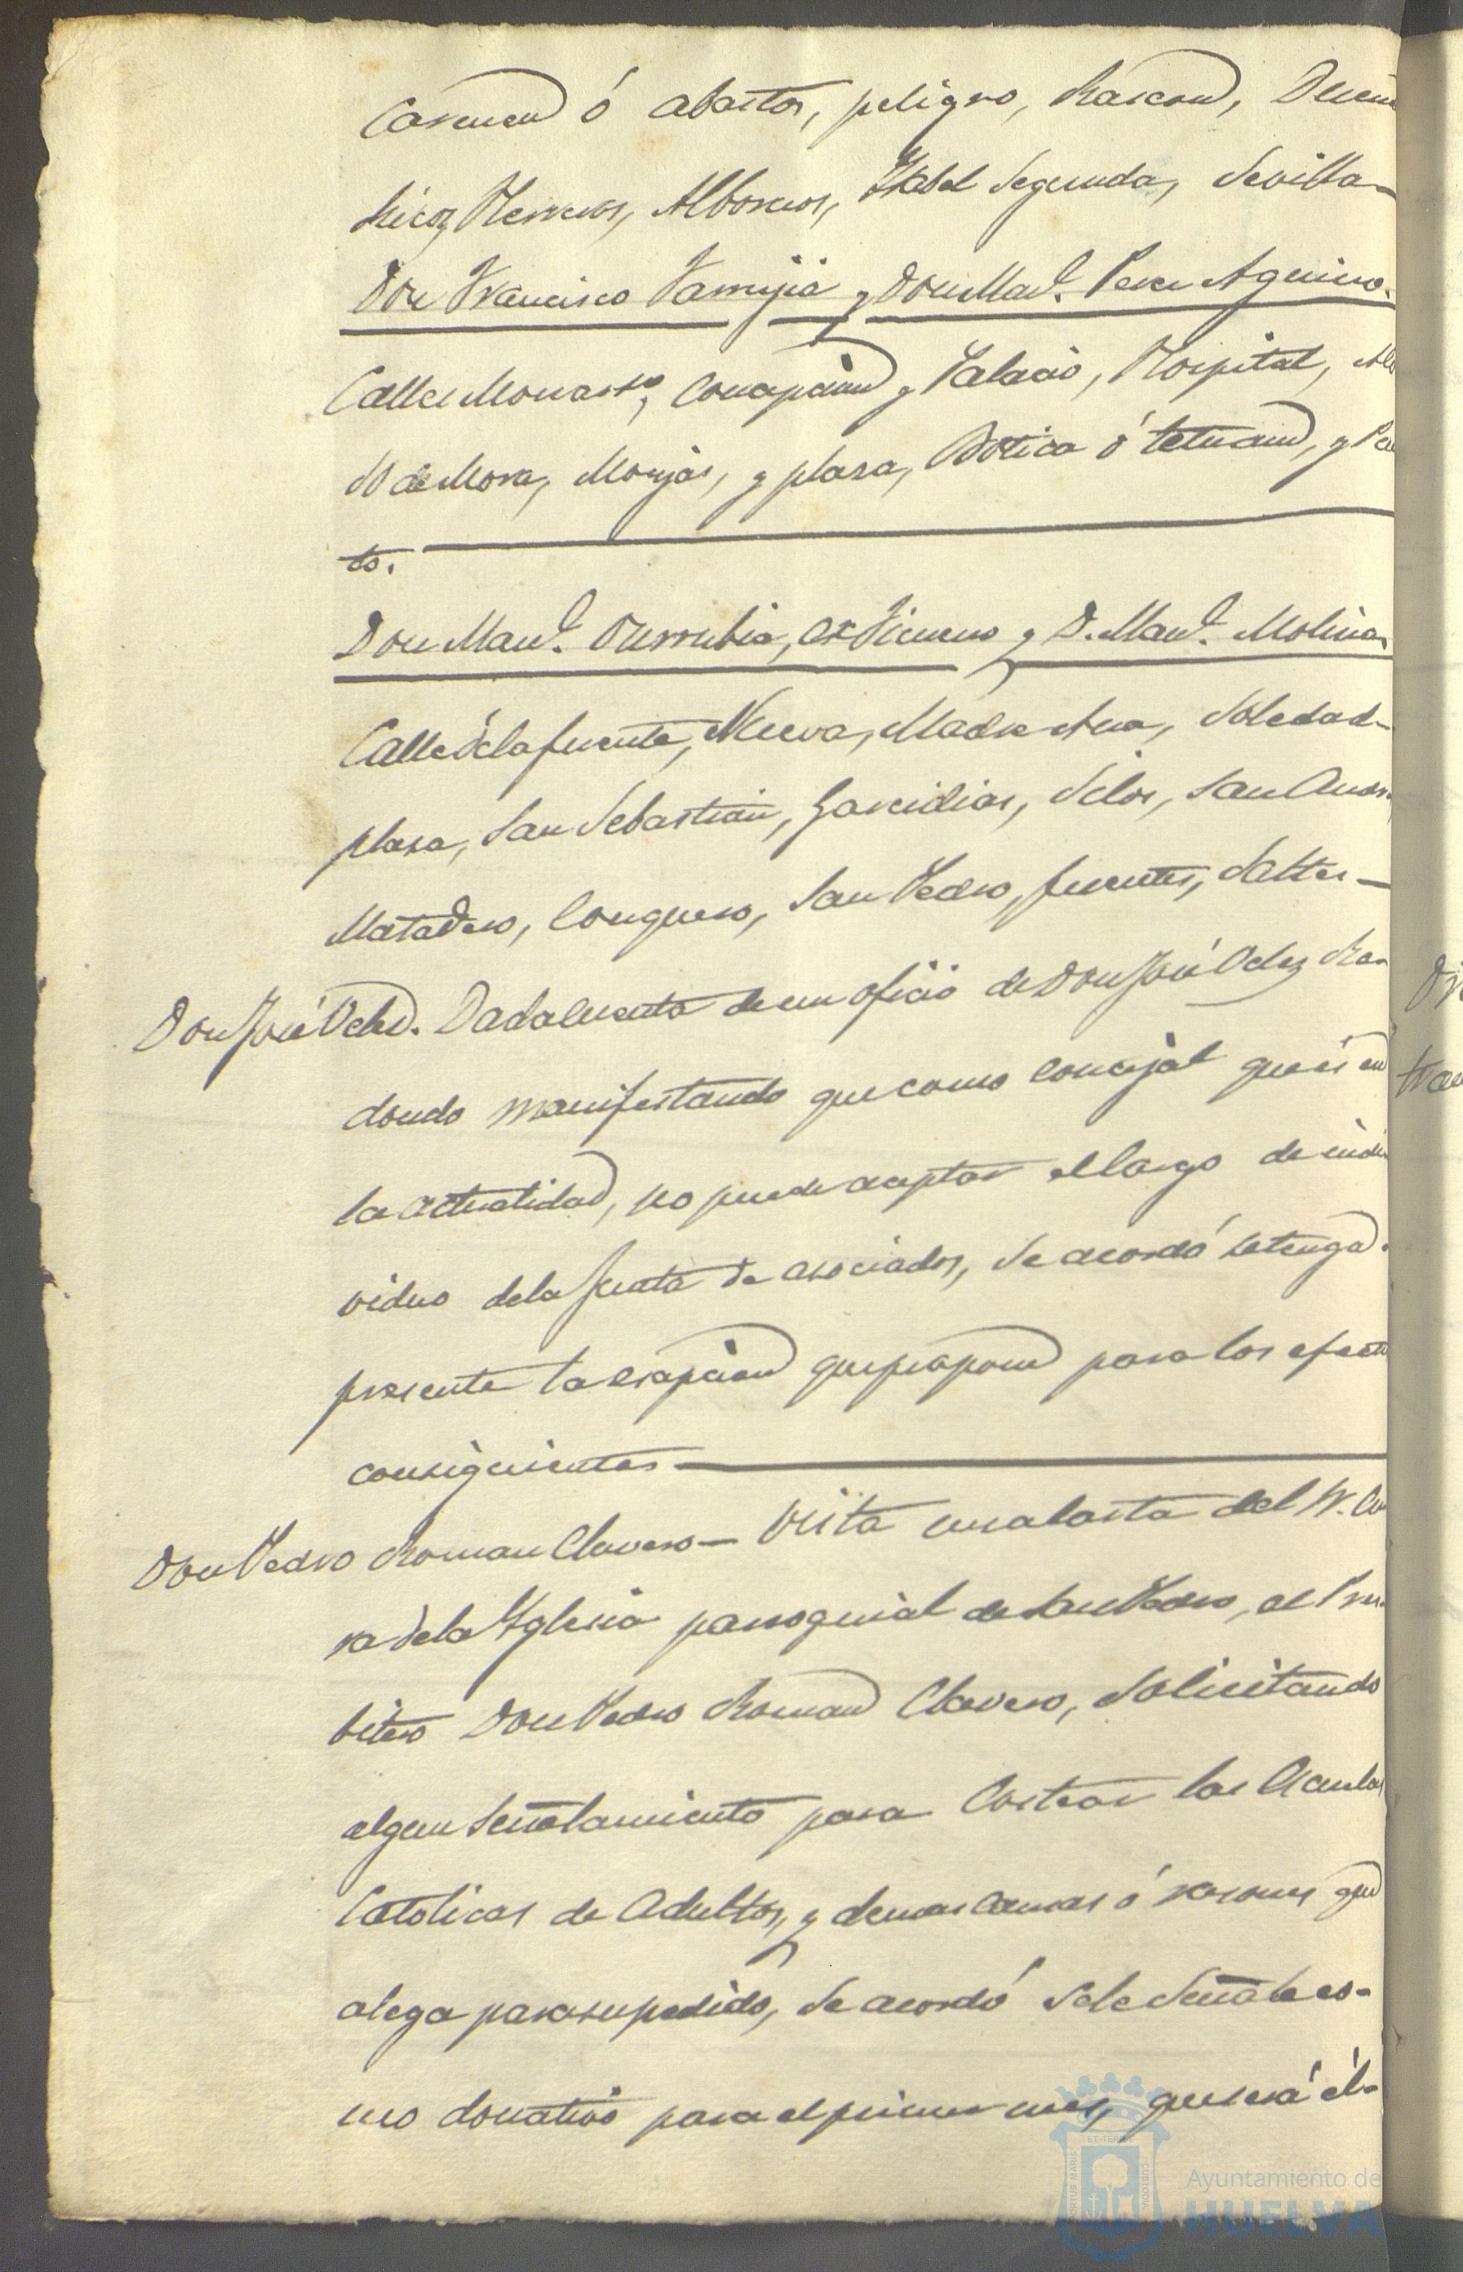 Carmen ó abastos, peligro, Rascon,
Ricos, Herreros, Albornos, Ysabel Segunda, Sevilla-
Don Francisco y Don Man.l Perez
Calles Monast.º, Concepcion y Palacio, Hospital,
de Mora, Monjas, y plasa, Botica ó tetuan, y Pu
to.
Don Man.l y D. Man.l Molina.
Calle de la fuente, Nueva, Madre Ana, Soledad-
plasa, San Sebastian, Garcidias, Silos, San Andrs
Matadero, Conquero, San Pedro, fuentes, Saltes-
Don José Velez. Dada Cuenta de un oficio de Don José Velez Re-
dondo manifestando que como concejal que és en
la actualidad, no puede aceptar el Cargo de indi
viduo de la Junta de asociados, Se acordó setenga
presente la escepcion que propone para los efectos
consiguientes
Don Pedro Roman Clavero- Vista una Carta del Sr. Cu
ra de la Yglesia parroquial de San Pedro, el Pres-
bitero Don Pedro Roman Clavero, Solicitando
algun señalamiento para Costear las Escuelas
Catolicas de Adultos, y demas Causas ó rasones que
alega para su pedido, Se acordó Sele Señale co-
mo donativo para el primer mes, que será él-
Ayuntamiento de
HUELVA